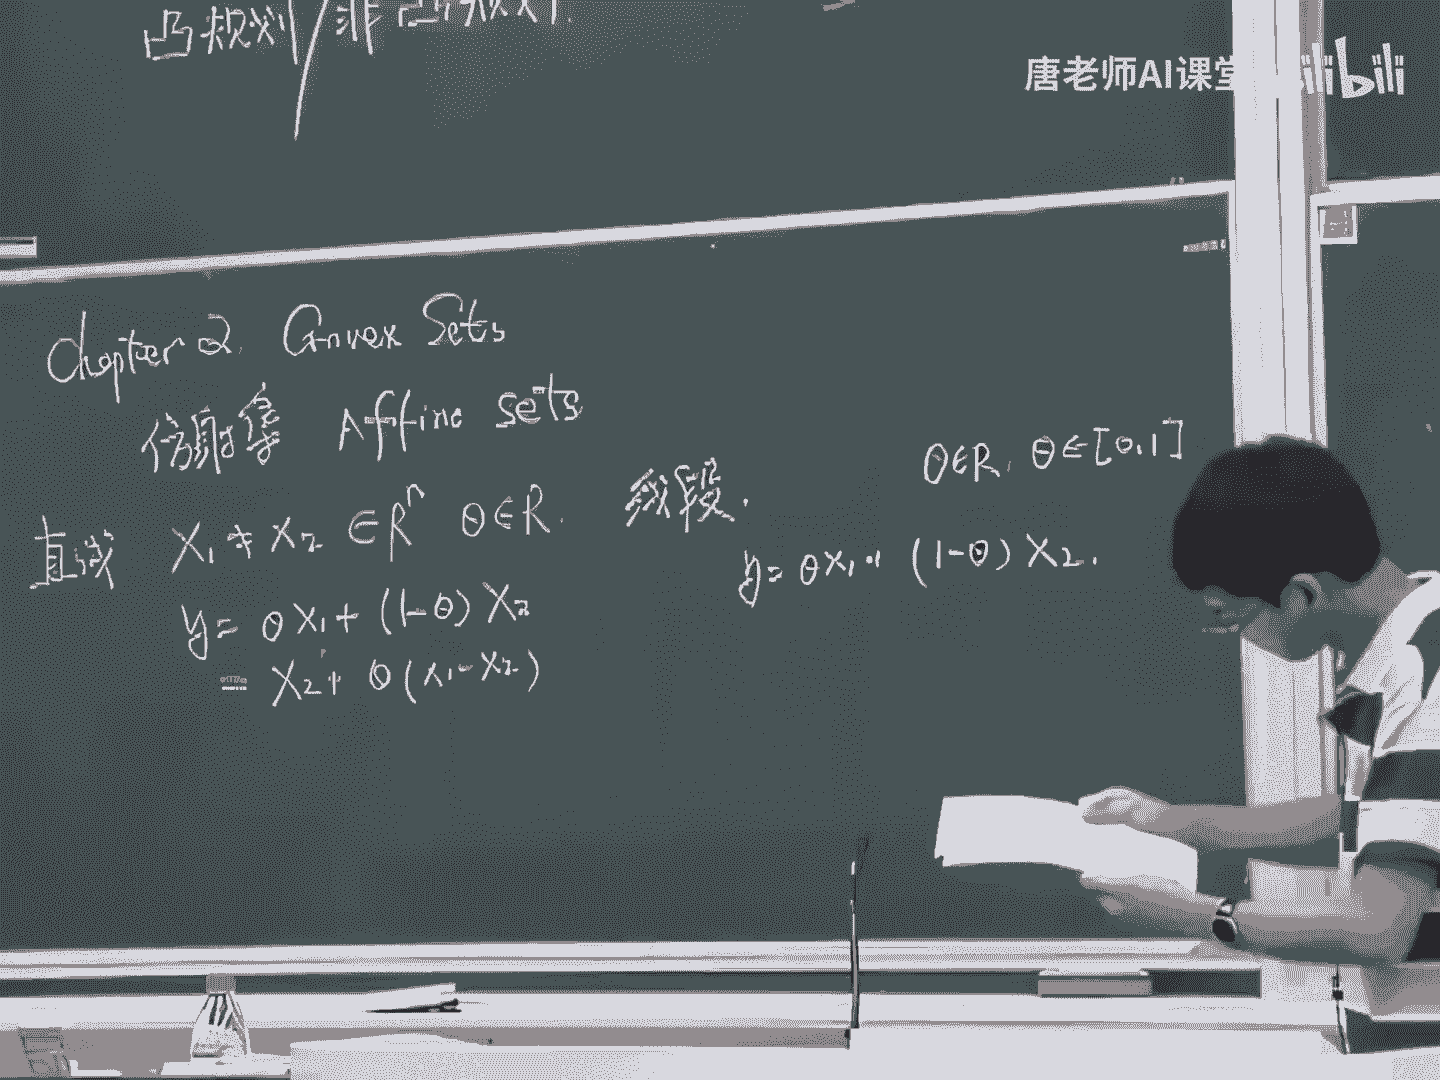 凸规划/非凸规划.
唐老师AI课堂 bilibili
Chapter 2. Convex Sets
仿射集 Affine sets
直线 X₁ ≠ X₂ ∈ Rⁿ θ∈R.
y = θX₁ + (1-θ) X₂
= X₂ + θ(X₁-X₂)
线段. θ∈R, θ∈[0,1]
y = θX₁ + (1-θ) X₂.